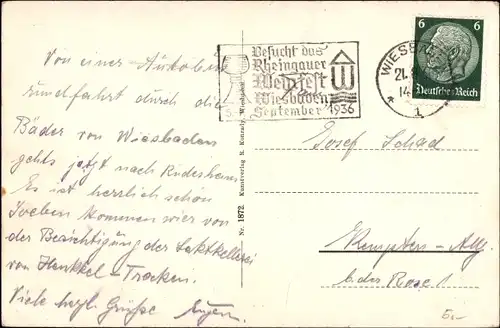 Von einer Autobus
rundfahrt durch die
Bäder von Wiesbaden
gehts jetzt nach Rüdesheim.
Es ist herrlich schön
Soeben kommen wir von
der Besichtigung der Sektkellerei
von Henkell-Trocken.
Viele herzl. Grüße Eugen.
Nr. 1872. Kunstverlag B. Konrady, Wiesbaden
Besucht das
Rheingauer
Weinfest
Wiesbaden
September 1936
WIESB
21.
14
* 1
6 6
Deutsches Reich
Josef Schad
Kempten-Allg.
b. der Rose 1
5.-